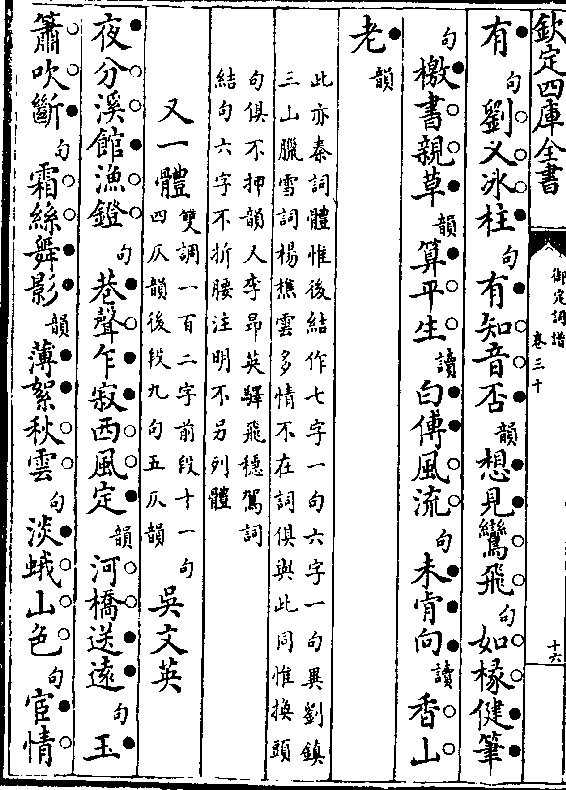 欽定四庫全書
御定詞譜
卷三十
十六
有句劉乂冰柱句有知音否韻想見鸞飛句如椽健筆
句檄書親草韻算平生讀白傅風流句未肯向讀香山
老韻
此亦秦詞體惟後結作七字一句六字一句異劉鎮
三山臘雪詞楊樵雲多情不在詞俱與此同惟換頭
句俱不押韻又李昂英驛飛穩駕詞
結句六字不折腰注明不另列體
又一體雙調一百二字前段十一句
四仄韻後段九句五仄韻
吳文英
夜分溪館漁鐙句巷聲乍寂西風定韻河橋送遠句玉
簫吹斷句霜絲舞影韻薄絮秋雲句淡蛾山色句宦情